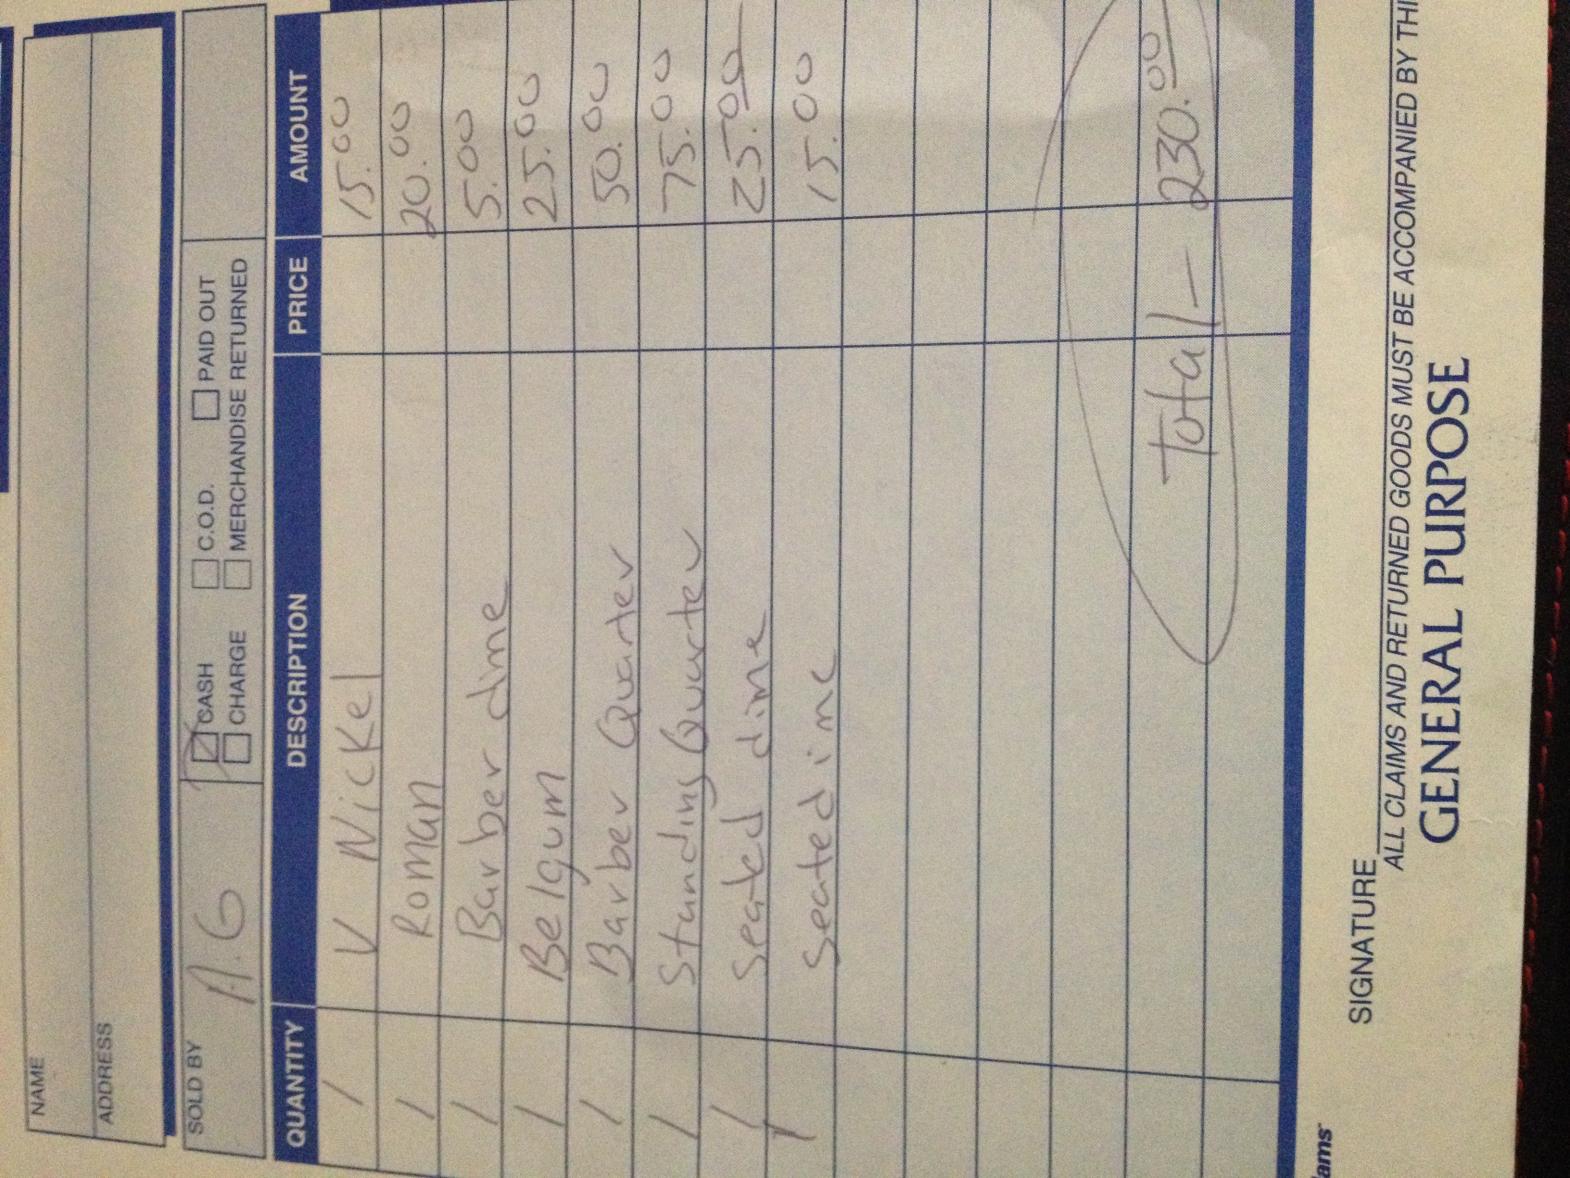 NAME
ADDRESS
SOLD BY A.G CASH C.O.D. PAID OUT
CHARGE MERCHANDISE RETURNED
QUANTITY DESCRIPTION PRICE AMOUNT
1 V Nickel 15.00
1 Roman 20.00
1 Barber dime 5.00
1 Belgum 25.00
1 Barber Quarter 50.00
1 Standing Quarter 75.00
1 Seated dime 25.00
1 Seated dime 15.00
Total - 230.00
SIGNATURE
ALL CLAIMS AND RETURNED GOODS MUST BE ACCOMPANIED BY THI
GENERAL PURPOSE